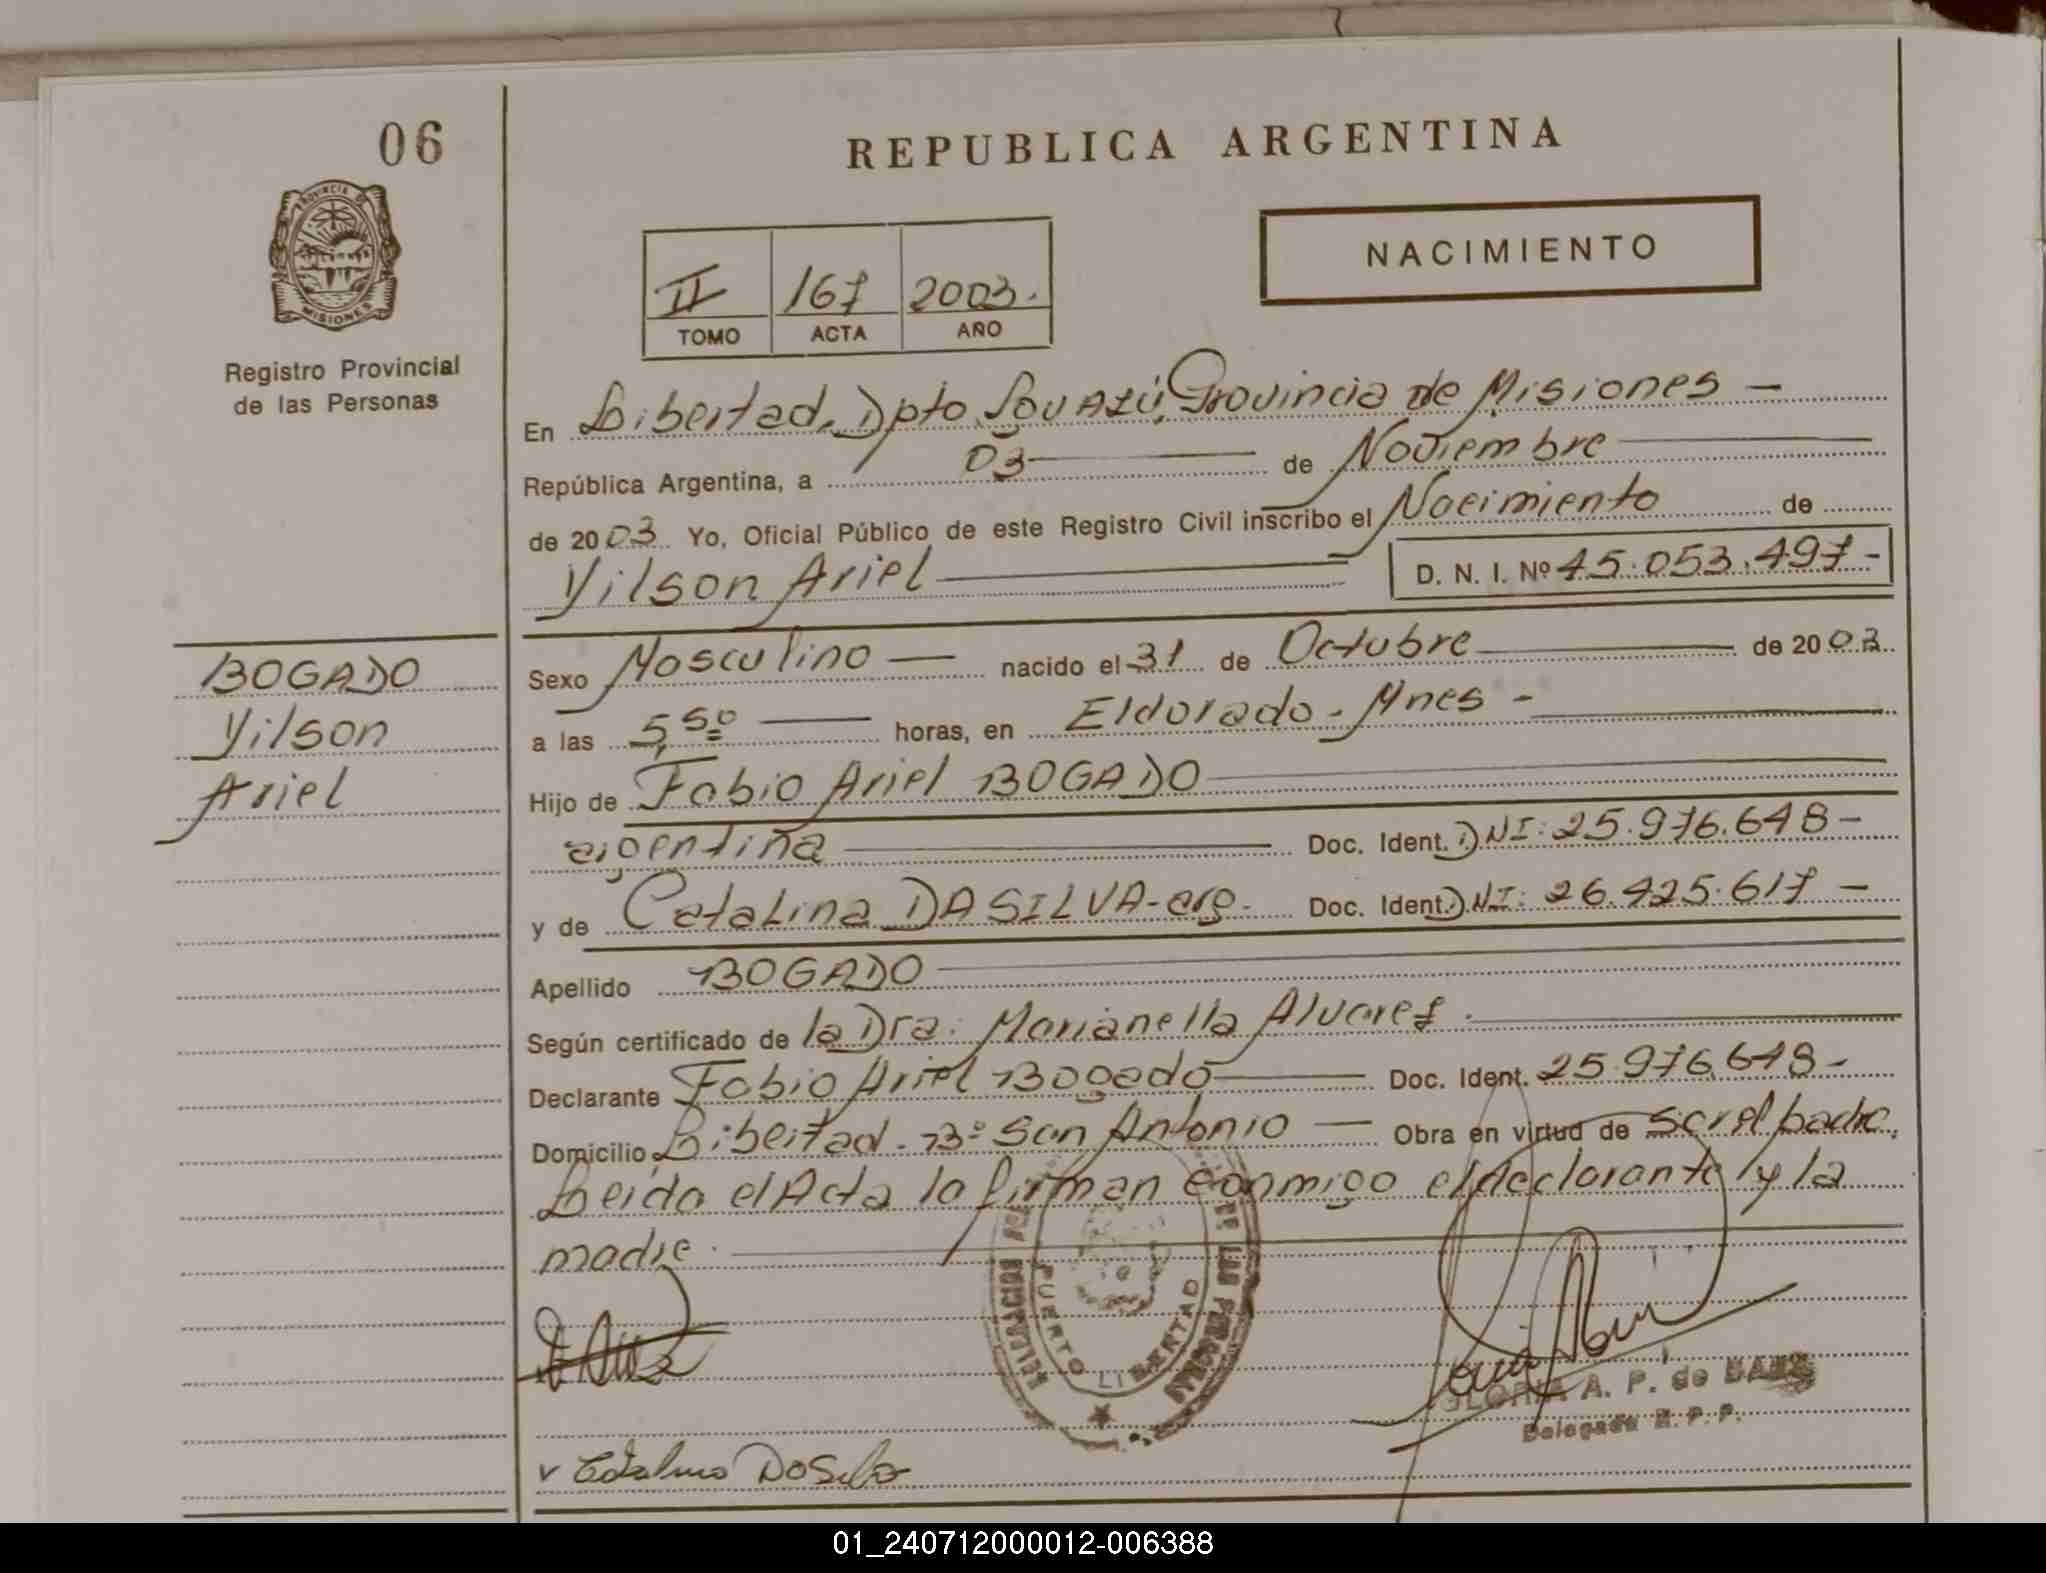 06
REPUBLICA ARGENTINA
PROVINCIA DE
MISIONES
Registro Provincial
de las Personas
NACIMIENTO
II 167 2003.
TOMO ACTA AÑO
En Libertad, Dpto Iguazú, Provincia de Misiones —
República Argentina, a 03 — de Noviembre
de 2003 Yo, Oficial Público de este Registro Civil inscribo el Nacimiento de
Yilson Ariel — D. N. I. Nº 45.053.497-
BOGADO
Yilson
Ariel
Sexo Masculino — nacido el 31 de Octubre — de 2003
a las 5,50 — horas, en Eldorado - Mnes -
Hijo de Fabio Ariel BOGADO
argentina — Doc. Ident. DNI: 25.976.648-
y de Catalina DA SILVA - arg. Doc. Ident. DNI: 26.425.617 —
Apellido BOGADO
Según certificado de la Dra. Marianella Alvarez.
Declarante Fabio Ariel Bogado — Doc. Ident. 25.976.648-
Domicilio Libertad - Bº San Antonio — Obra en virtud de ser el padre.
Leida el Acta la firman conmigo el declarante y la
madre.
PUERTO LIBERTAD
GLORIA A. P. de
Delegada R. P. P.
Catalina Da Silva
01_240712000012-006388